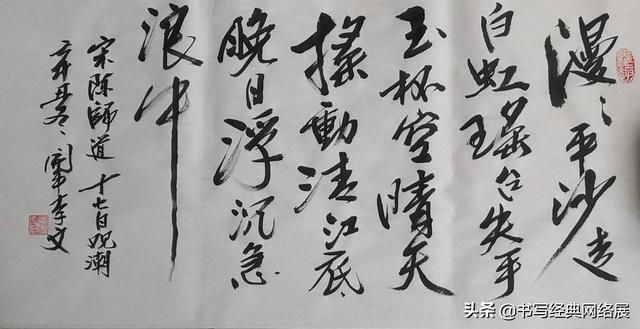 漫〻平沙走
白虹瑶台失手
玉杯空晴天
搖動清江底
晚日浮沉急
浪中
宋陈師道十七日观潮
辛丑李文
头条 @书写经典网络展